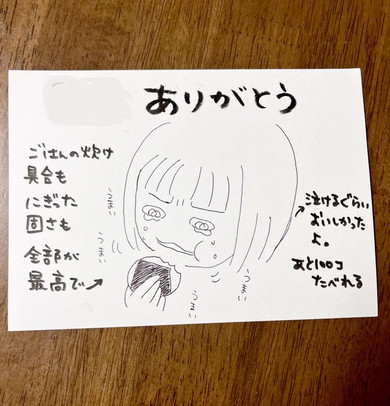 ありがとう
ごはんの炊け
具合も
にぎった
固さも
全部が
最高で
うまい
うまい
うまい
うまい
泣けるぐらい
おいしかった
よ。
あと100コ
たべれる